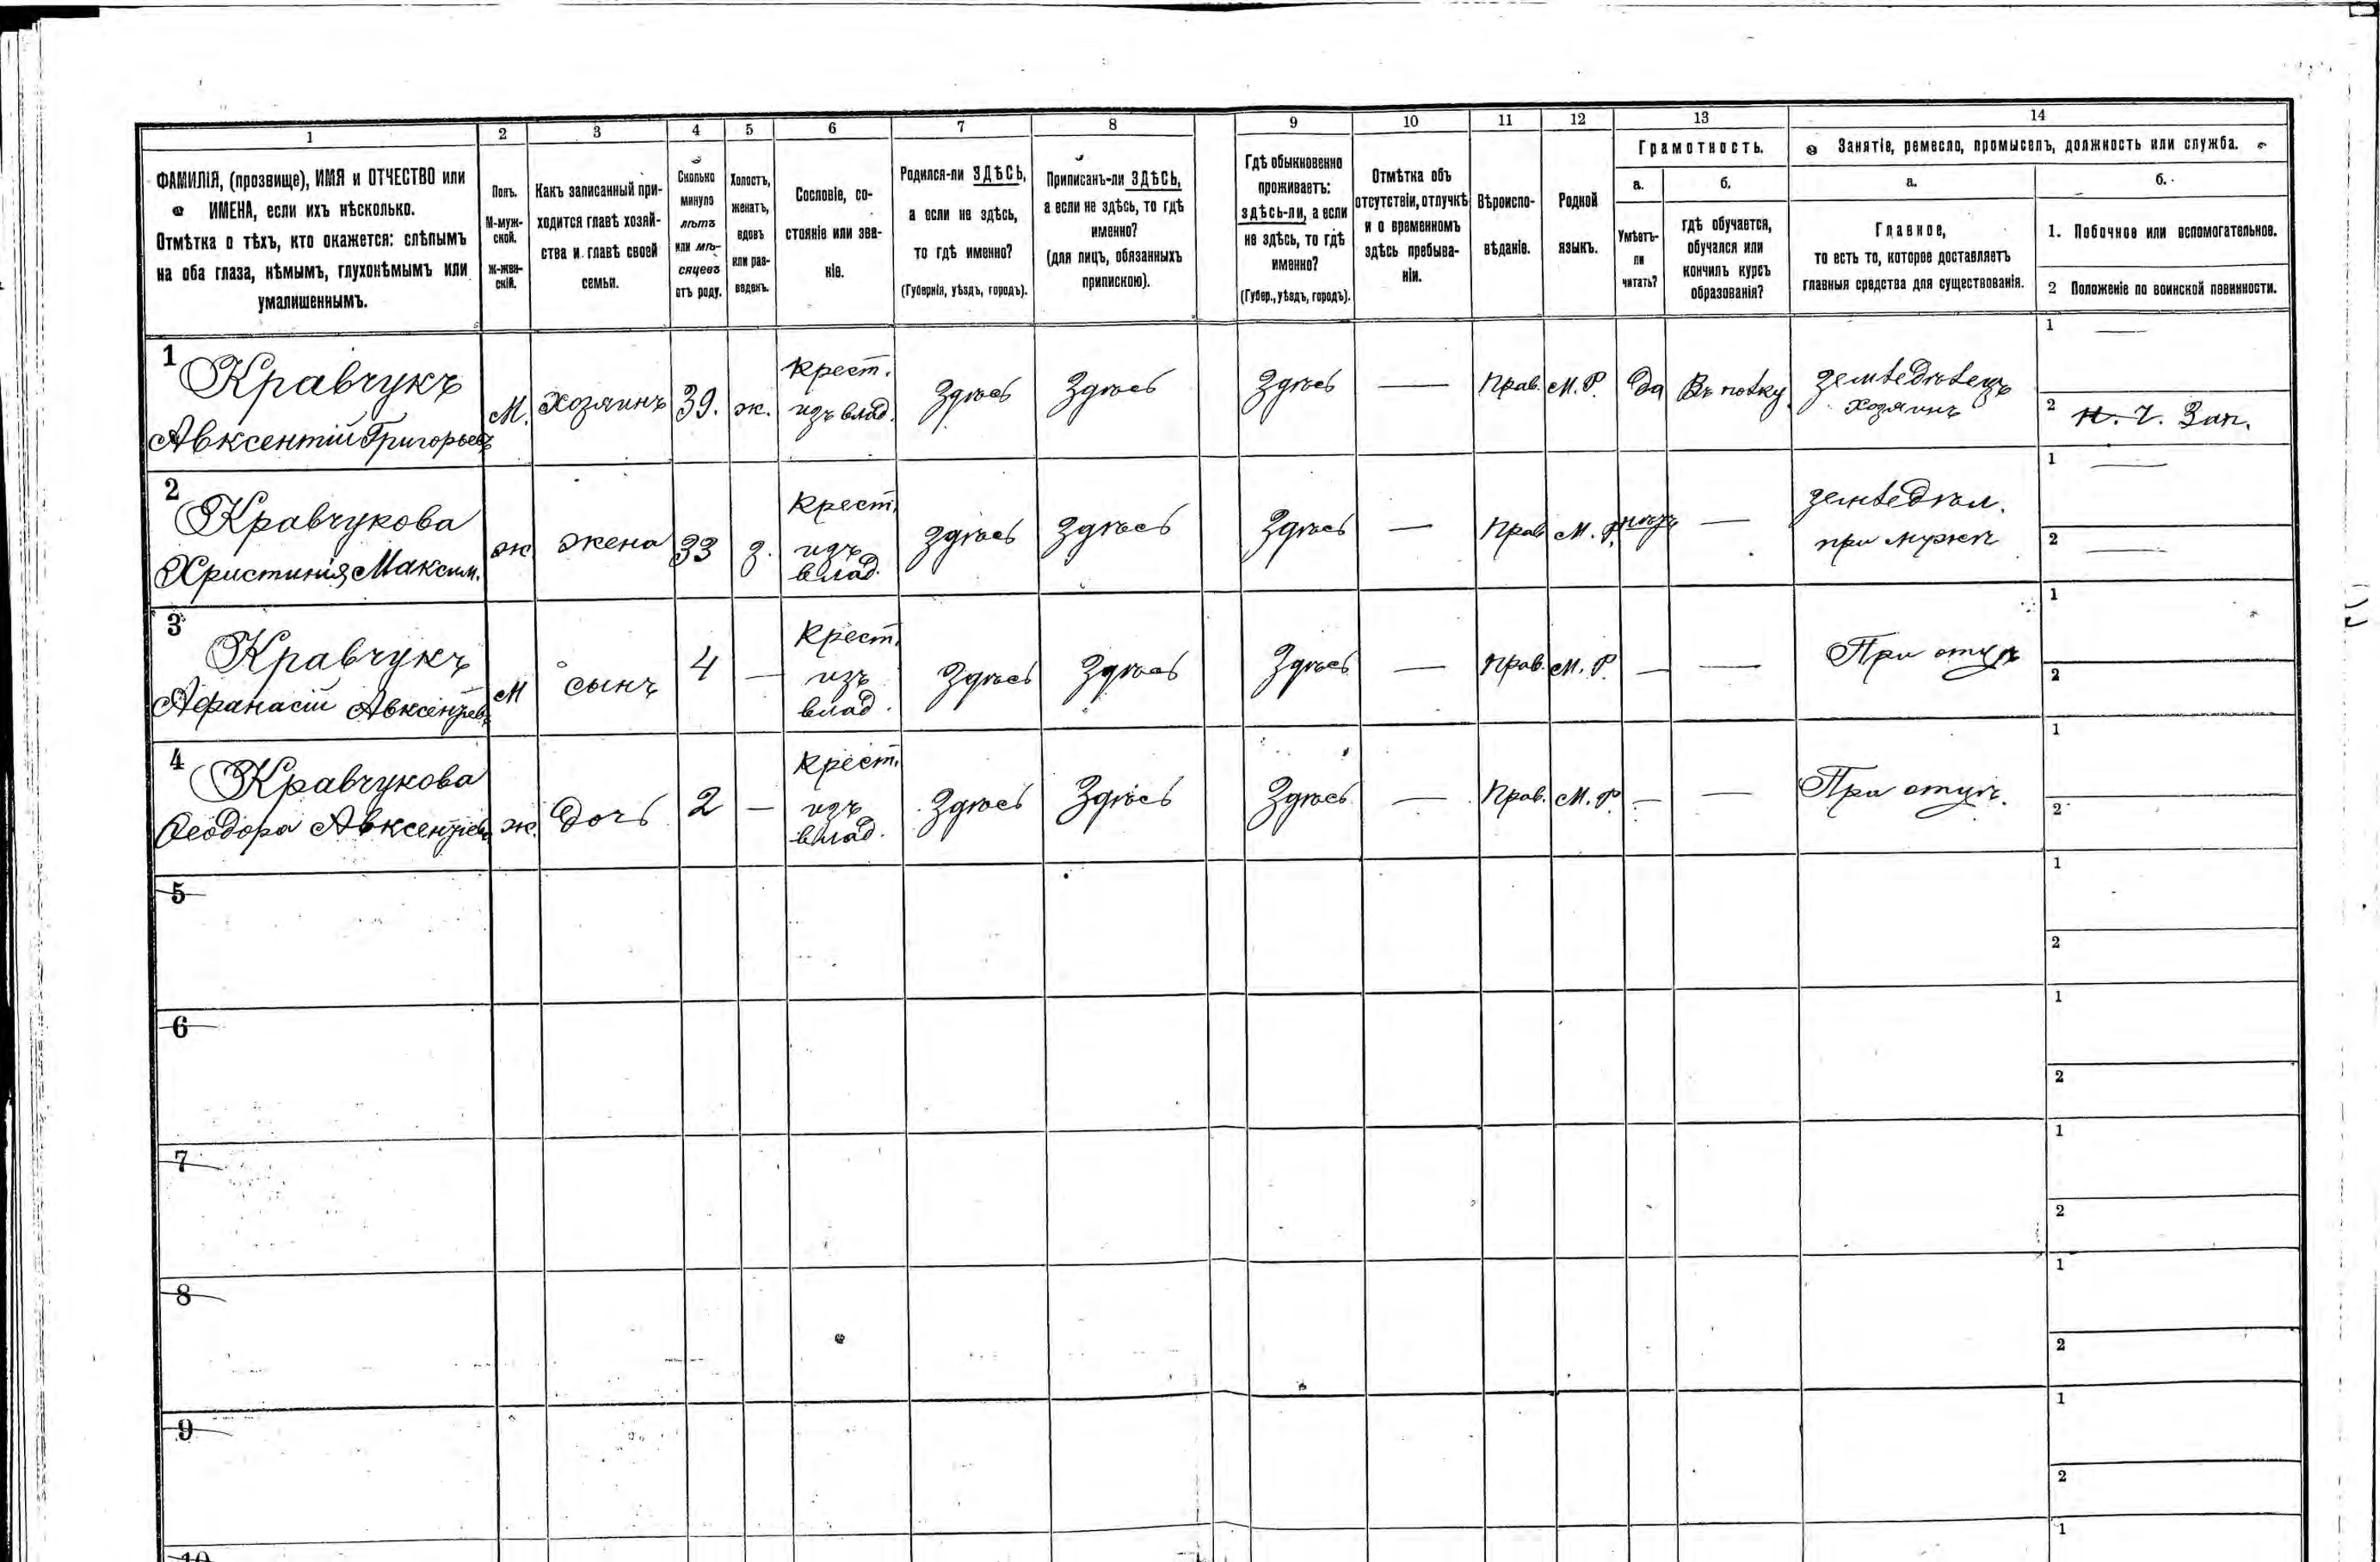 1 2 3 4 5 6 7 8 9 10 11 12 13 14
ФАМИЛІЯ, (прозвище), ИМЯ и ОТЧЕСТВО или
ИМЕНА, если ихъ нѣсколько.
Отмѣтка о тѣхъ, кто окажется: слѣпымъ
на оба глаза, нѣмымъ, глухонѣмымъ или
умалишеннымъ.
Полъ.
М-муж-
ской.
Ж-жен-
скій.
Какъ записанный при-
ходится главѣ хозяй-
ства и главѣ своей
семьи.
Сколько
минуло
лѣтъ
или мѣ-
сяцевъ
отъ роду.
Холостъ,
женатъ,
вдовъ
или раз-
веденъ.
Сословіе, со-
стояніе или зва-
ніе.
Родился-ли ЗДѢСЬ,
а если не здѣсь,
то гдѣ именно?
(Губернія, уѣздъ, городъ).
Приписанъ-ли ЗДѢСЬ,
а если не здѣсь, то гдѣ
именно?
(для лицъ, обязанныхъ
припискою).
Гдѣ обыкновенно
проживаетъ:
здѣсь-ли, а если
не здѣсь, то гдѣ
именно?
(Губер., уѣздъ, городъ).
Отмѣтка объ
отсутствіи, отлучкѣ
и о временномъ
здѣсь пребыва-
ніи.
Вѣроиспо-
вѣданіе.
Родной
языкъ.
Грамотность.
а.
Умѣетъ-
ли
читать?
б.
гдѣ обучается,
обучался или
кончилъ курсъ
образованія?
Занятіе, ремесло, промыселъ, должность или служба.
а.
Главное,
то есть то, которое доставляетъ
главныя средства для существованія.
б.
1. Побочное или вспомогательное.
2 Положеніе по воинской повинности.
1
Кравчукъ
Авксентій Григорьевъ
М.
хозяинъ
39.
ж.
крест.
изъ влад.
Здѣсь
Здѣсь
Здѣсь
—
Прав.
М. Р.
Да
Въ полку
земледѣлецъ
хозяинъ
1 —
2 Н. Ч. Зап.
2
Кравчукова
Христинія Максим.
ж
жена
33
з.
крест.
изъ
влад.
Здѣсь
Здѣсь
Здѣсь
—
Прав
М. Р.
нѣтъ
—
земледѣл.
при мужѣ
1 —
2 —
3
Кравчукъ
Афанасій Авксентьев
М
сынъ
4
—
крест.
изъ
влад.
Здѣсь
Здѣсь
Здѣсь
—
Прав.
М. Р.
—
—
При отцѣ
1
2
4
Кравчукова
Ѳеодора Авксентьев
ж.
дочь
2
—
крест.
изъ
влад.
Здѣсь
Здѣсь
Здѣсь
—
Прав.
М. Р.
—
—
При отцѣ.
1
2
5
1
2
6
1
2
7
1
2
8
1
2
9
1
2
10
1